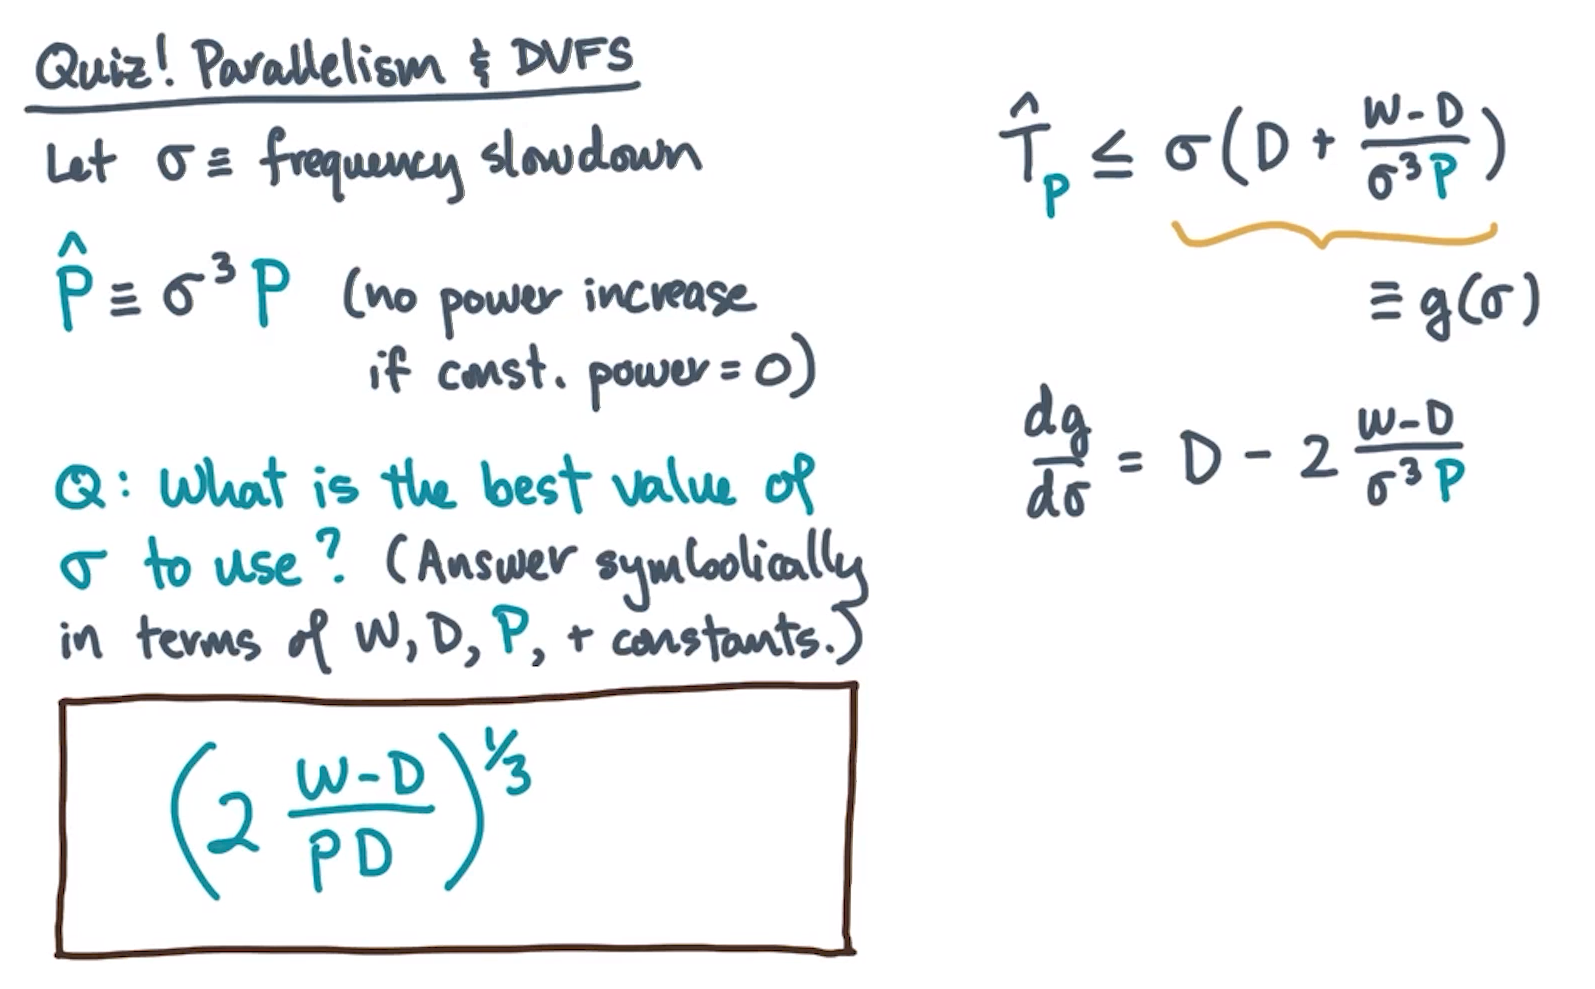 Quiz! Parallelism & DVFS
Let σ ≡ frequency slowdown
P̂ ≡ σ³ P (no power increase
if const. power = 0)
Q: What is the best value of
σ to use? (Answer symbolically
in terms of W, D, P, + constants.)
(2 (W-D)/(PD))^(1/3)
T̂_P ≤ σ(D + (W-D)/(σ³P))
≡ g(σ)
dg/dσ = D - 2 (W-D)/(σ³P)